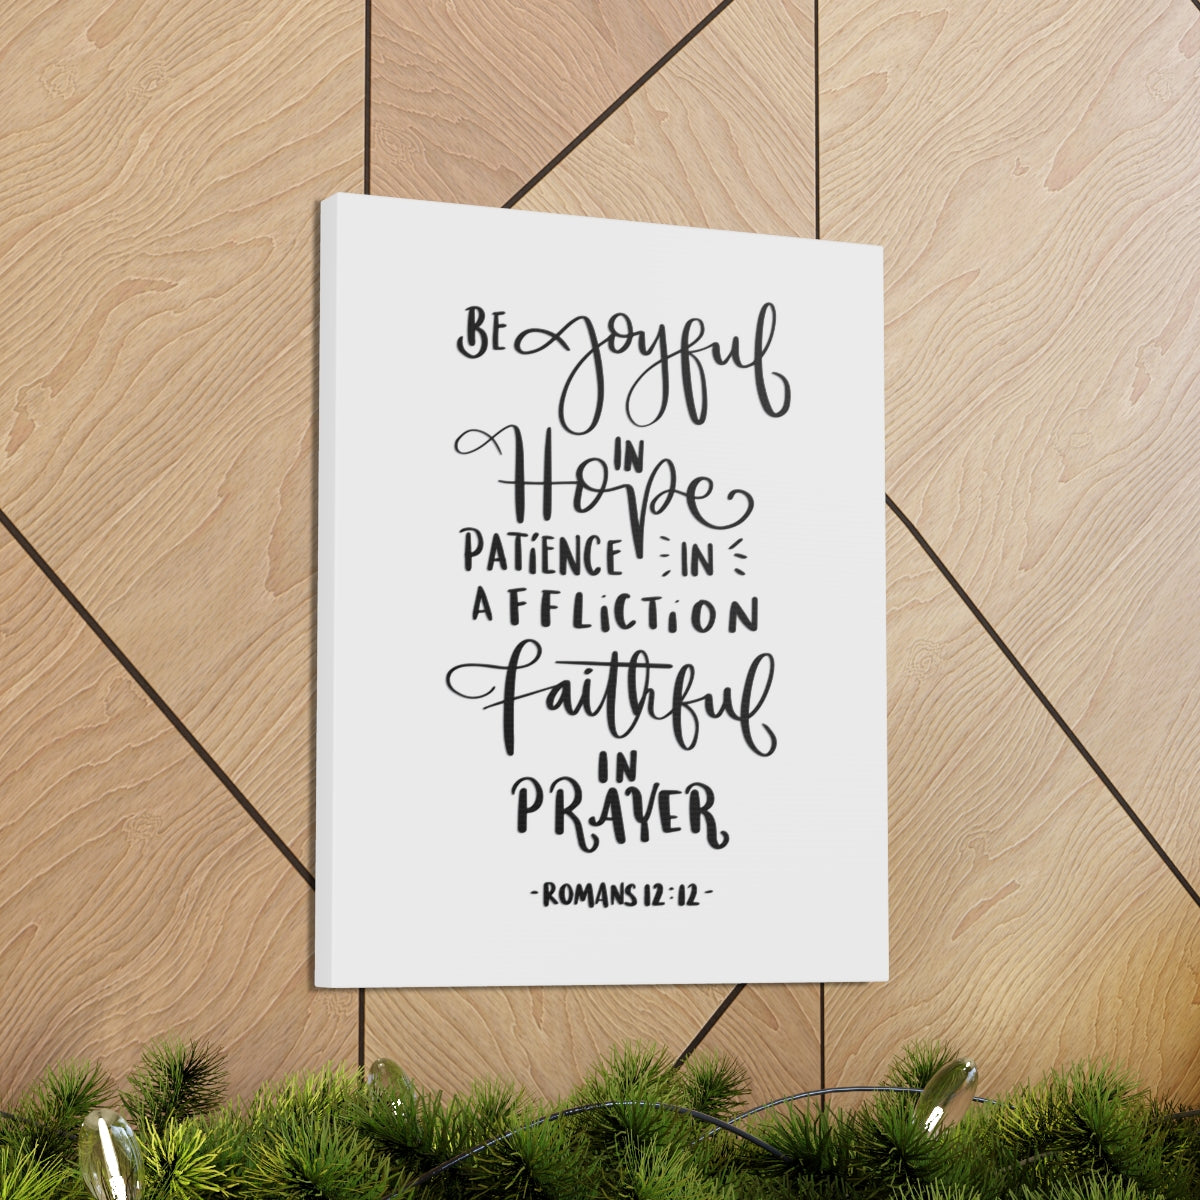 BE Joyful
IN
Hope
PATIENCE IN
AFFLICTION
Faithful
IN
PRAYER
-ROMANS 12:12-